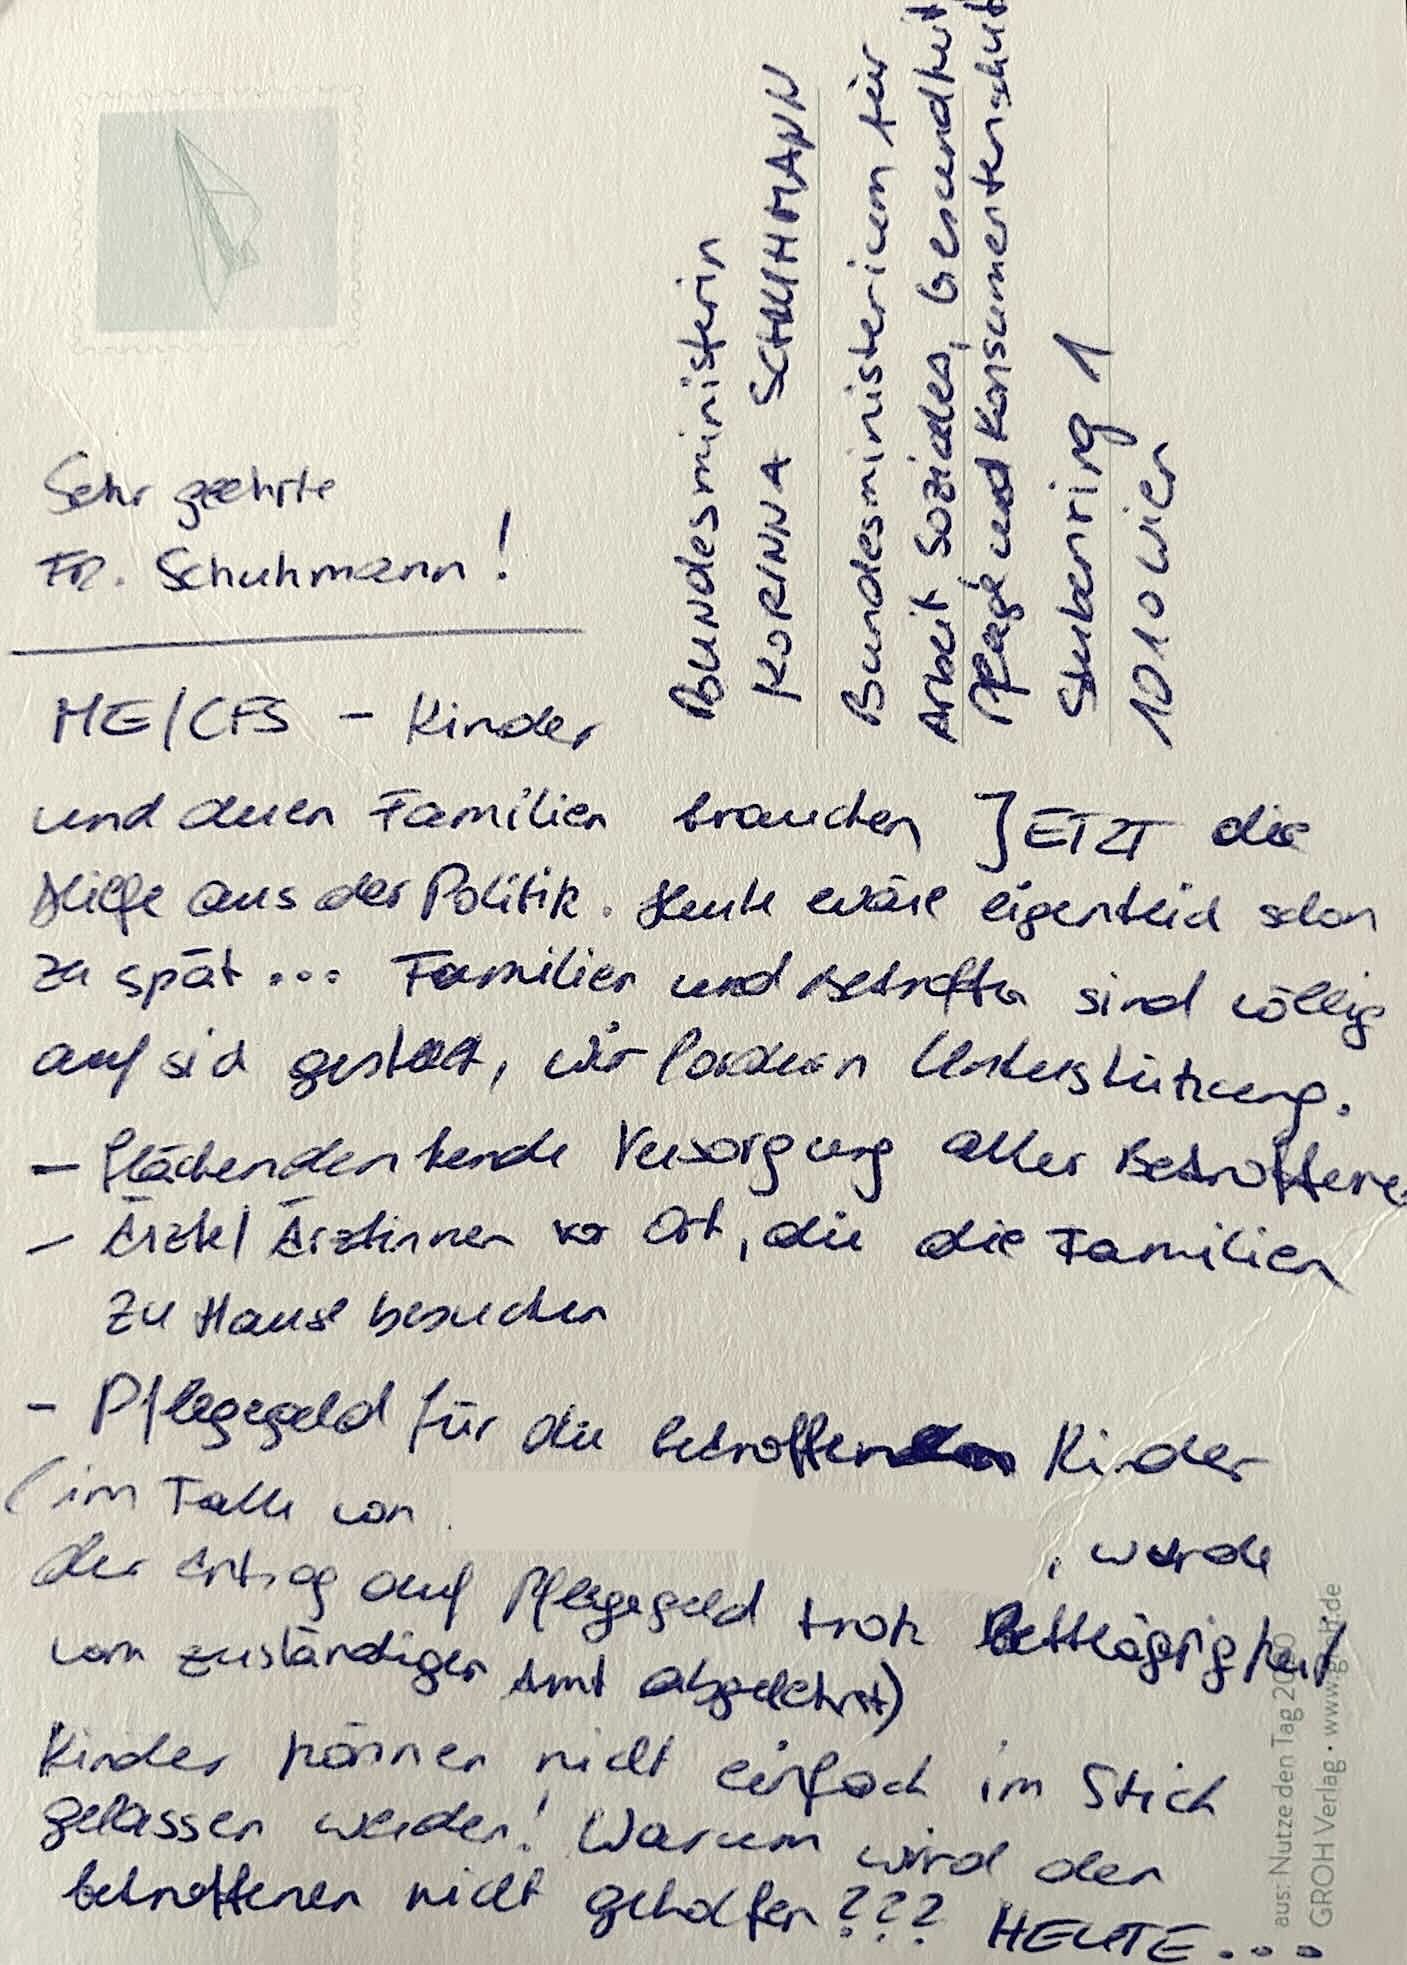 Bundesministerin
KORINNA SCHUHMANN
Bundesministerium für
Arbeit Soziales, Gesundheit
Pflege und Konsumentenschutz
Stubenring 1
1010 Wien
Sehr geehrte
Fr. Schuhmann!
ME/CFS - Kinder
und deren Familien brauchen JETZT die
Hilfe aus der Politik. Heute wäre eigentlich schon
zu spät... Familien und Betroffen sind völlig
auf sich gestellt, wir fordern Unterstützung.
- flächendenkende Versorgung aller Betroffene
- Ärzte/Ärztinnen vor Ort, die die Familien
zu Hause besuchen
- Pflegegeld für die betroffenen Kinder
(im Falle von , wurde
der Antrag auf Pflegegeld trotz Bettlägrigkeit
vom zuständigen Amt abgelehnt)
Kinder können nicht einfach im Stich
gelassen werden! Warum wird den
betroffenen nicht geholfen??? HEUTE...
aus: Nutze den Tag
GROH Verlag • www.groh.de